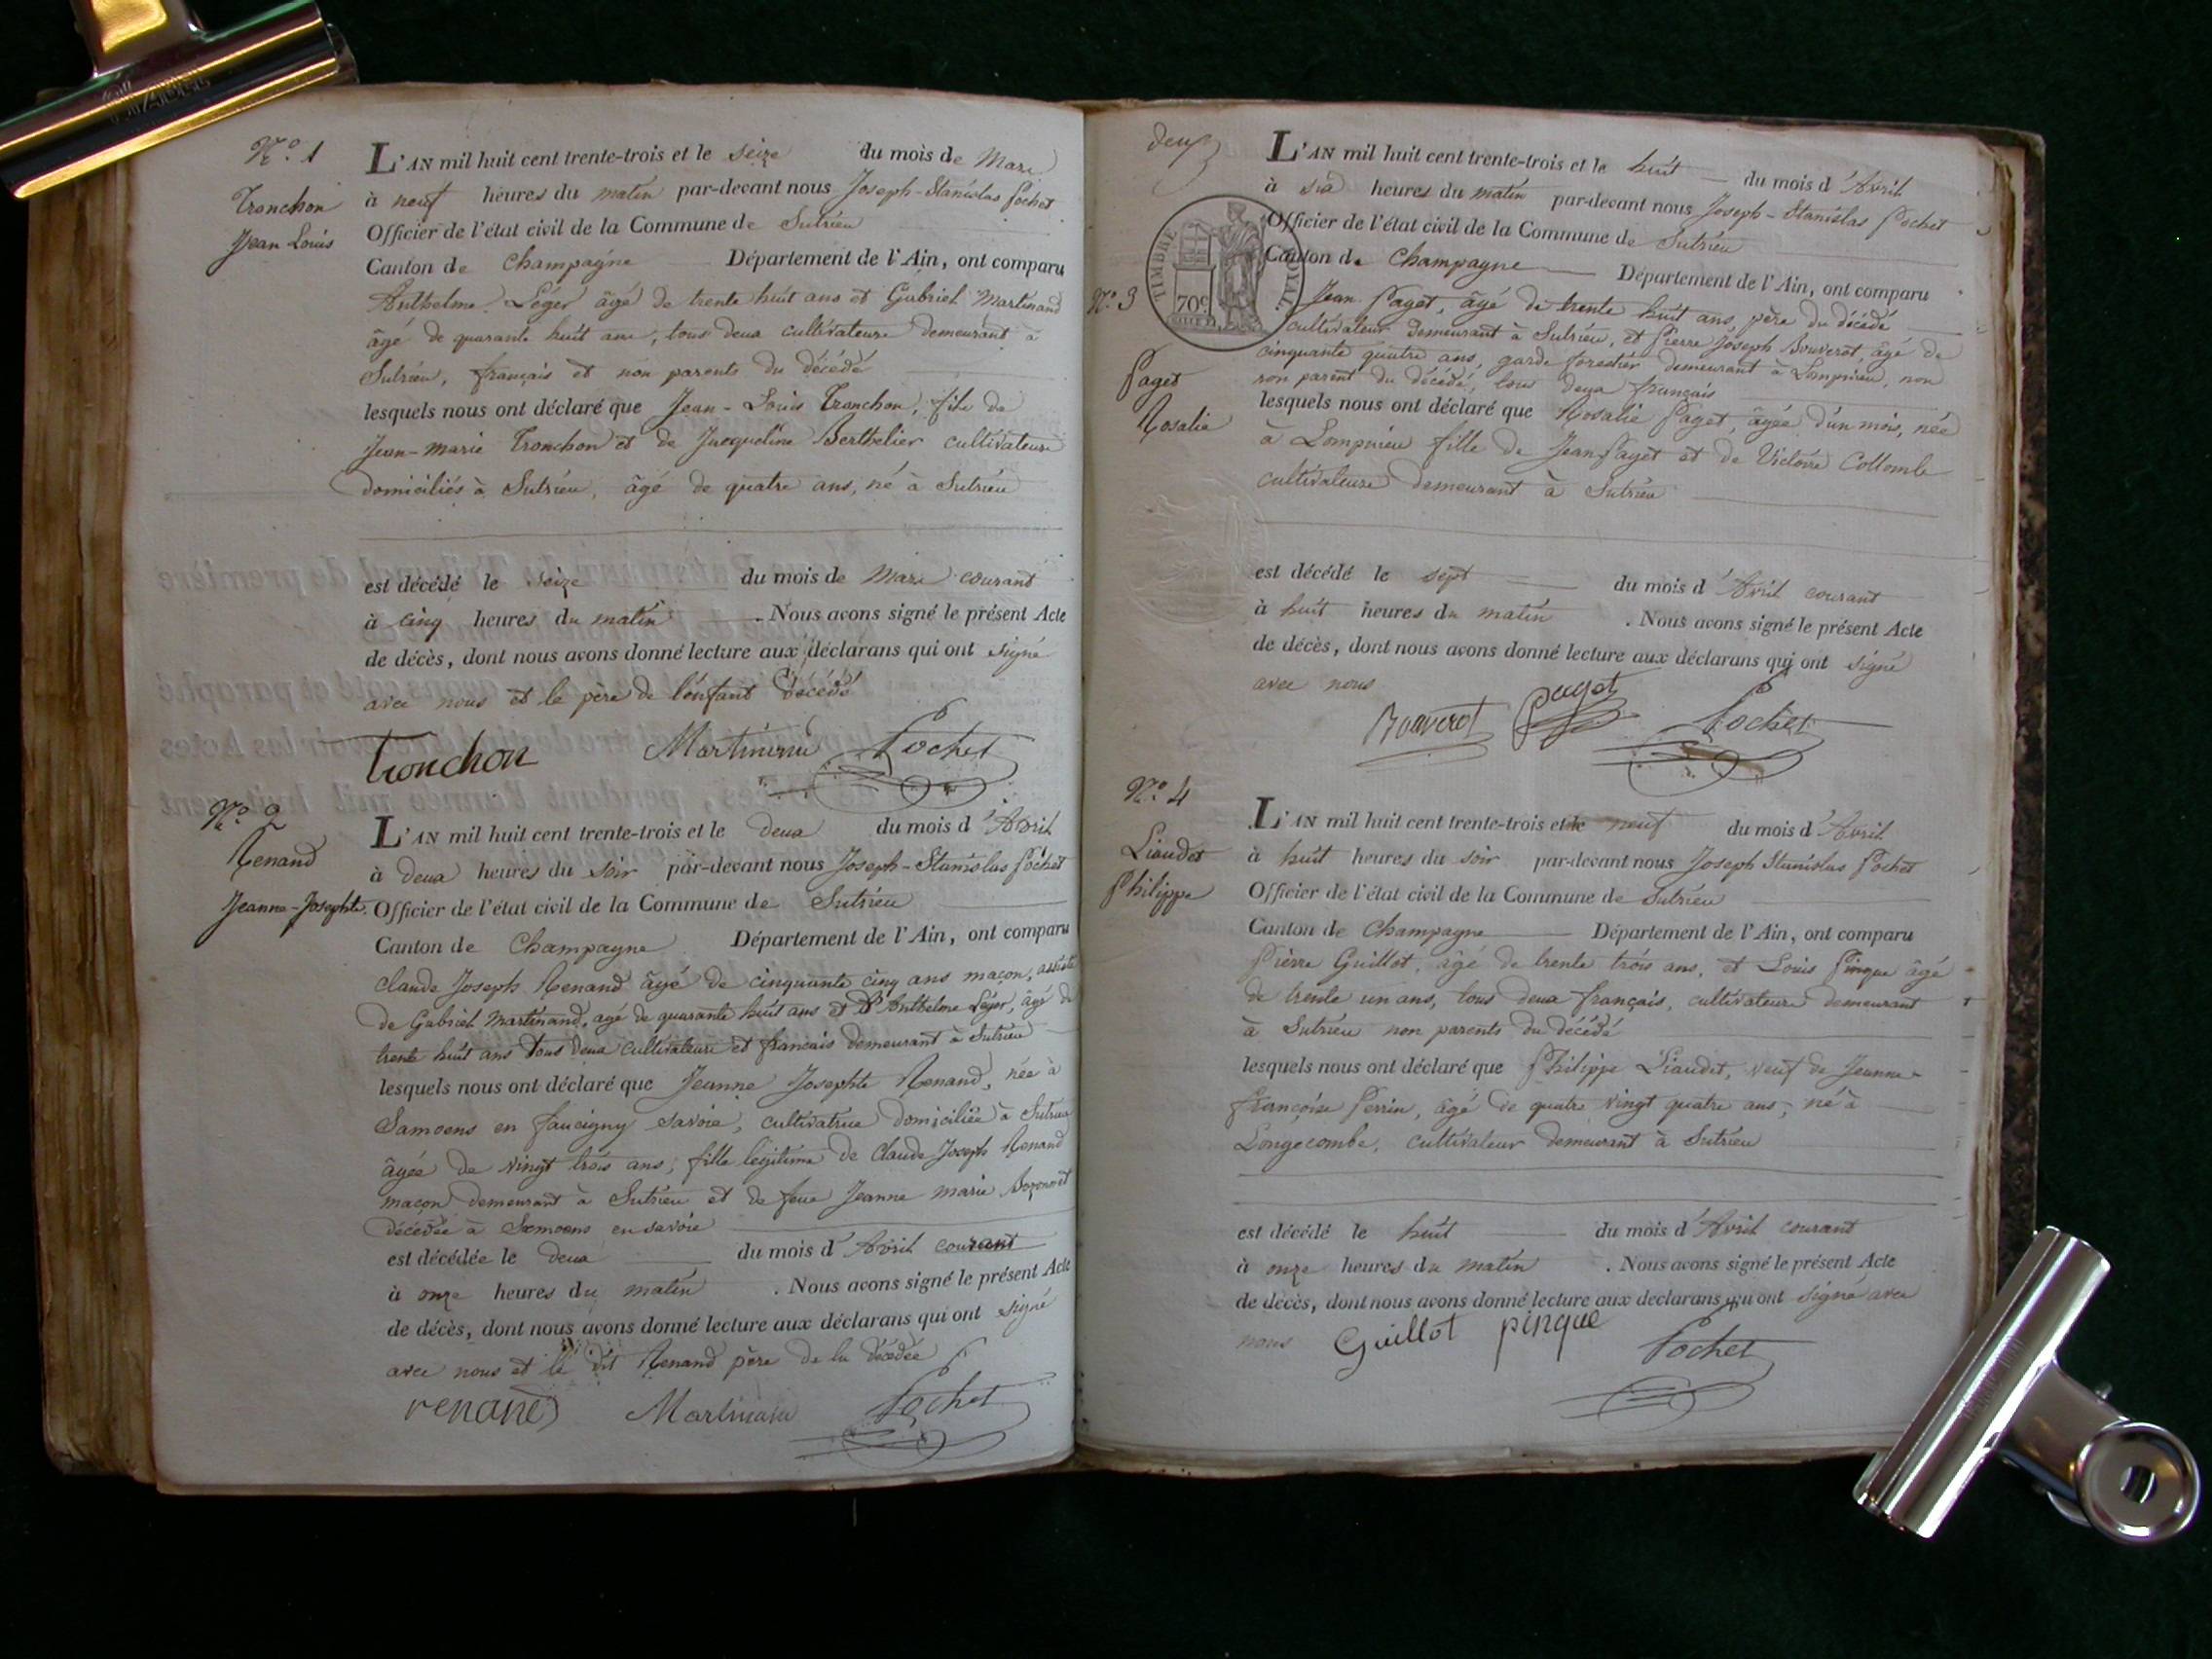 N.° 1
Tronchon
Jean Louis
L'AN mil huit cent trente-trois et le seize du mois de Mars
à neuf heures du matin par-devant nous Joseph-Stanislas Pochet
Officier de l'état civil de la Commune de Sutrieu
Canton de Champagne Département de l'Ain, ont comparu
Anthelme Léger âgé de trente huit ans et Gabriel Martinand
âgé de quarante huit ans, tous deux cultivateurs demeurant à
Sutrieu, français et non parents du décédé
lesquels nous ont déclaré que Jean-Louis Tronchon, fils de
Jean-marie Tronchon et de Jacqueline Berthelier cultivateurs
domiciliés à Sutrieu, âgé de quatre ans, né à Sutrieu
est décédé le seize du mois de Mars courant
à cinq heures du matin . Nous avons signé le présent Acte
de décès, dont nous avons donné lecture aux déclarans qui ont signé
avec nous et le père de l'enfant décédé
Tronchon Martinand Pochet
N.° 2
Renand
Jeanne-Josephte
L'AN mil huit cent trente-trois et le deux du mois d'Avril
à deux heures du soir par-devant nous Joseph-Stanislas Pochet
Officier de l'état civil de la Commune de Sutrieu
Canton de Champagne Département de l'Ain, ont comparu
claude Joseph Renand âgé de cinquante cinq ans maçon, assisté
de Gabriel Martinand, agé de quarante huit ans et d'Anthelme Léger, âgé de
trente huit ans tous deux cultivateurs et francais demeurant à Sutrieu
lesquels nous ont déclaré que Jeanne Josephte Renand, née à
Samoens en faucigny savoie, cultivatrice domiciliée à Sutrieu
âgée de vingt trois ans, fille légitime de Claude Joseph Renand
maçon demeurant à Sutrieu et de feue Jeanne marie
décédée à Samoens en savoie
est décédée le deux du mois d'Avril courant
à onze heures du matin . Nous avons signé le présent Acte
de décès, dont nous avons donné lecture aux déclarans qui ont signé
avec nous et le dit Renand père de la décédée
renand Martinand Pochet
deux
TIMBRE ROYAL
70c
N.° 3
Paget
Rosalie
L'AN mil huit cent trente-trois et le huit du mois d'Avril
à six heures du matin par-devant nous Joseph-Stanislas Pochet
Officier de l'état civil de la Commune de Sutrieu
Canton de Champagne Département de l'Ain, ont comparu
Jean Paget, âgé de trente huit ans, père du décédé
cultivateur demeurant à Sutrieu, et Pierre Joseph Bouverot, âgé de
cinquante quatre ans, garde forestier demeurant à Lompnieu, non
non parent du décédé, tous deux français
lesquels nous ont déclaré que Rosalie Paget, âgée d'un mois, née
à Lompnieu fille de Jean Paget et de Victoire Collomb
cultivateurs demeurant à Sutrieu
est décédé le sept du mois d'Avril courant
à huit heures du matin . Nous avons signé le présent Acte
de décès, dont nous avons donné lecture aux déclarans qui ont signé
avec nous
Bouverot Paget Pochet
N.° 4
Liaudet
Philippe
L'AN mil huit cent trente-trois et le neuf du mois d'Avril
à huit heures du soir par-devant nous Joseph Stanislas Pochet
Officier de l'état civil de la Commune de Sutrieu
Canton de Champagne Département de l'Ain, ont comparu
Pierre Guillot, âgé de trente trois ans, et Louis Pinque âgé
de trente un ans, tous deux français, cultivateurs demeurant
à Sutrieu non parents du décédé
lesquels nous ont déclaré que Philippe Liaudet, veuf de Jeanne-
françoise Perrin, âgé de quatre vingt quatre ans, né à
Longecombe, cultivateur demeurant à Sutrieu
est décédé le huit du mois d'Avril courant
à onze heures du matin . Nous avons signé le présent Acte
de décès, dont nous avons donné lecture aux déclarans qui ont signé avec
nous Guillot pinque Pochet